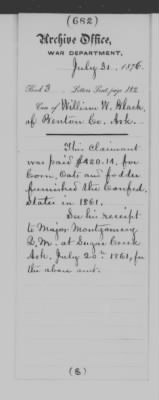 (682)
Archive Office,
WAR DEPARTMENT,
July 31, 1876.
Book 3 Letters Sent, page 182
Case of William W. Black,
of Benton Co. Ark.
This claimant
was paid $420.14, for
Corn, Oats and fodder
furnished the Confed.
States in 1861.
See his receipt
to Major Montgomery
Q.M. at Sugar Creek
Ark. July 20th 1861, for
the above amt.
(8)